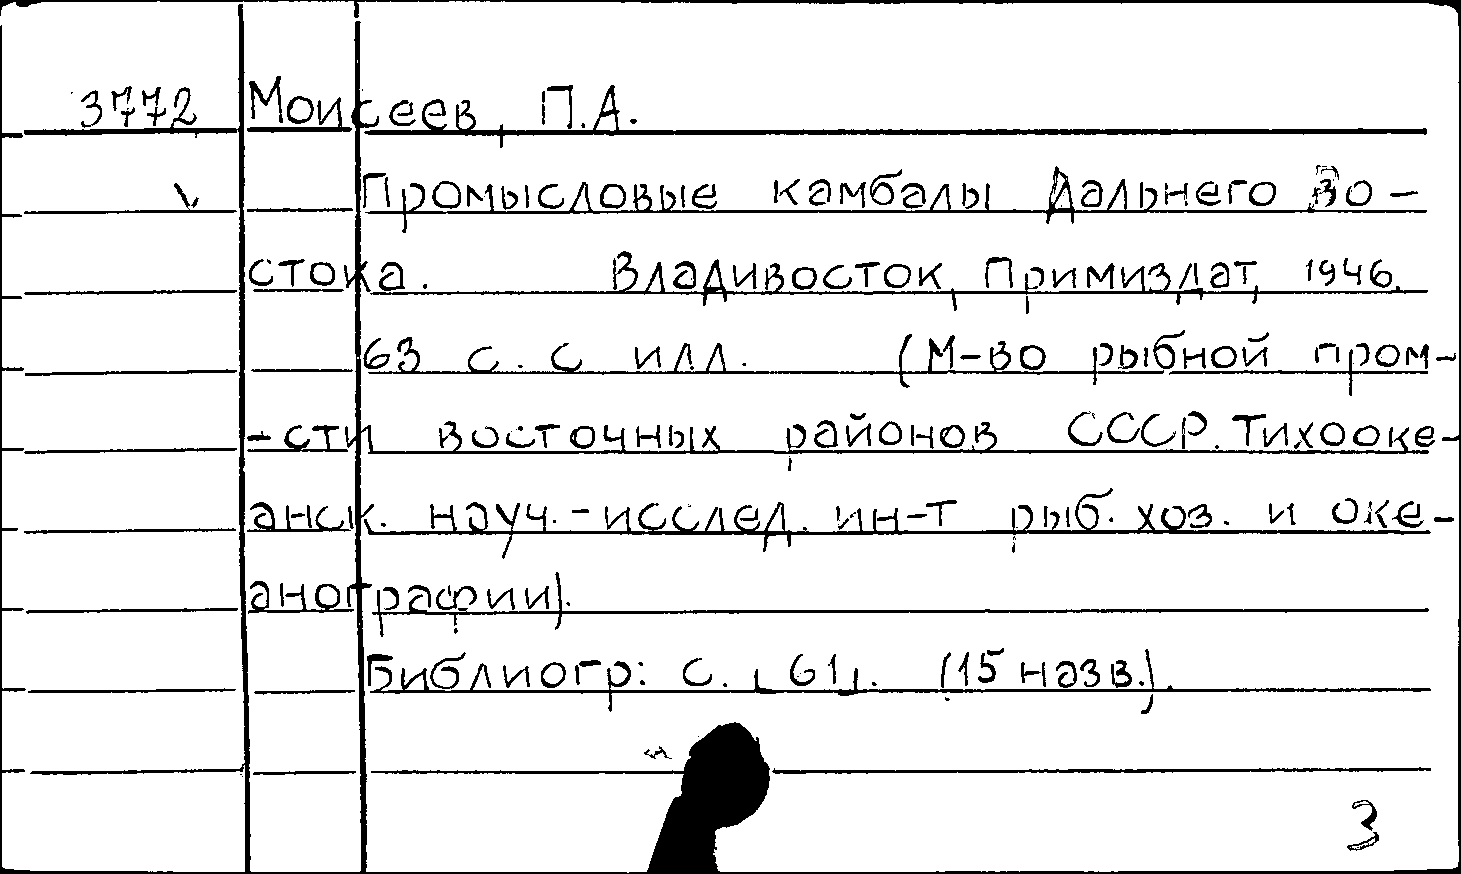 3772 Моисеев, П.А.
Промысловые камбалы Дальнего Во-
стока. Владивосток, Примиздат, 1946.
63 с. с илл. (М-во рыбной пром-
-сти восточных районов СССР. Тихооке-
анск. науч.-исслед. ин-т рыб. хоз. и оке-
анографии).
Библиогр: с. ⌞61⌟. (15 назв.).
3